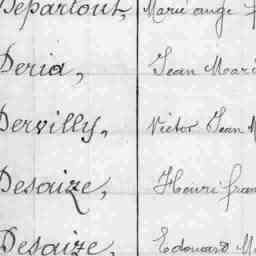 Departout, Marie ange
Deria, Jean Mari
Dervilly, Victor Jean M
Desaize, Henri fran
Desaize, Edouard M